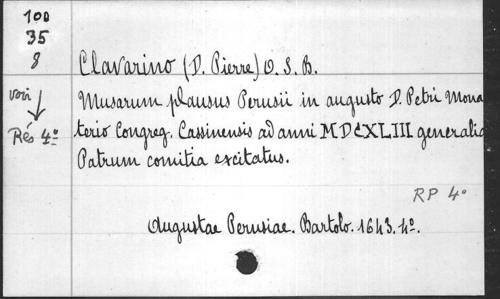 100
35
8
Clavarino (D. Pierre) O. S. B.
voir
Musarum plausus Perusii in augusto D. Petri Mona
Rés 4º
terio Congreg. Cassinensis ad anni MDCXLIII generalia
Patrum comitia excitatus.
RP 4º
Augustae Perusiae. Bartolo. 1643. 4º.